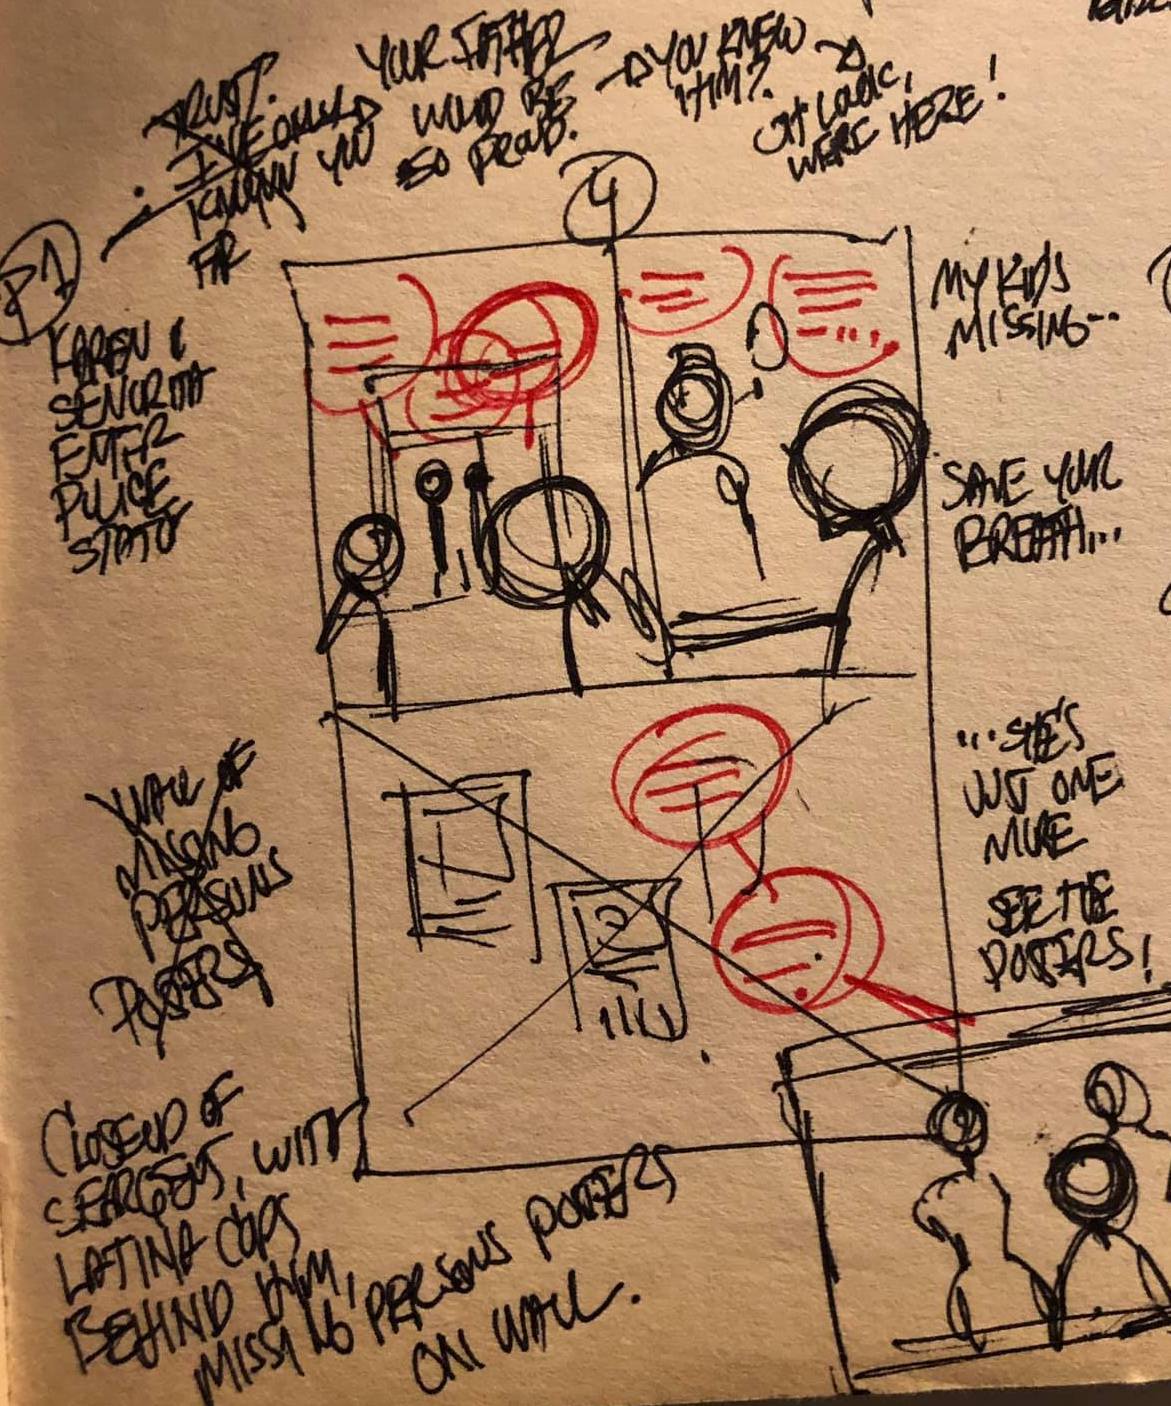 TRUST.
I'VE ONLY
KNOWN YOU
FAR
YOUR FATHER
WOULD BE
SO PROUD.
YOU KNEW
HIM?
OH LOOK,
WERE HERE!
4
P1
KAREN &
SENORITA
ENTER
POLICE
STATO
MY KIDS
MISSING--
SAVE YOUR
BREATH...
WALL OF
MISSING
PERSONS
POSTERS
...SHE'S
JUST ONE
MORE
SEE THE
POSTERS!
CLOSEUP OF
SEARGENT, WITH
LATINA COPS
BEHIND HIM,
MISSING PERSONS POSTERS
ON WALL.